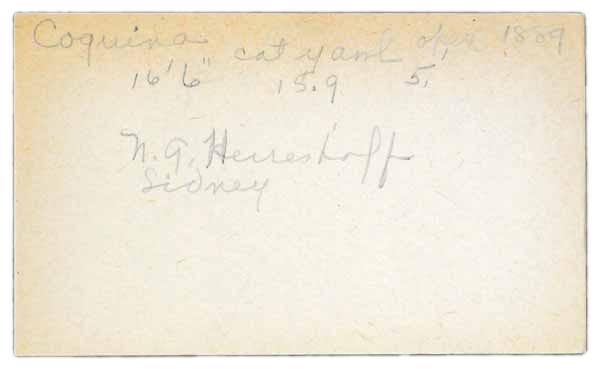 Coquina cat yawl open 1889
16' 6" 15.9 5.
N. G. Herreshoff
Sidney